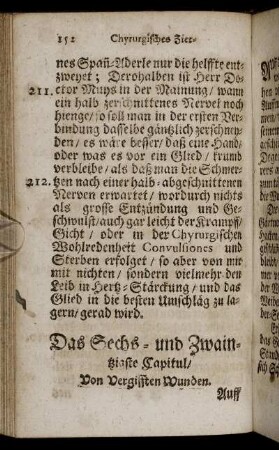 152 Chyrurgisches Zier-
nes Spañ-Aderle nur die helffte ent-
zweyet; Derohalben ist Herr Do-
211. ctor Muys in der Mainung / wann
ein halb zerschnittenes Nervel noch
hienge / so soll man in der ersten Ver-
bindung dasselbe gäntzlich zerschney-
den / es wäre besser / daß eine Hand /
oder was es vor ein Glied / krumb
verbleibe / als daß man die Schmer-
212. tzen nach einer halb-abgeschnittenen
Nerven erwartet / wordurch nichts
als grosse Entzündung und Ge-
schwulst / auch gar leicht der Krampff /
Gicht / oder in der Chyrurgischen
Wohlredenheit Convulsiones und
Sterben erfolget / so aber von mir
mit nichten / sondern vielmehr den
Leib in Hertz-Stärckung / und das
Glied in die besten Umschläg zu la-
gern / gerad wird.
Das Sechs- und Zwain-
tzigste Capitul /
Von Vergifften Wunden.
Auff